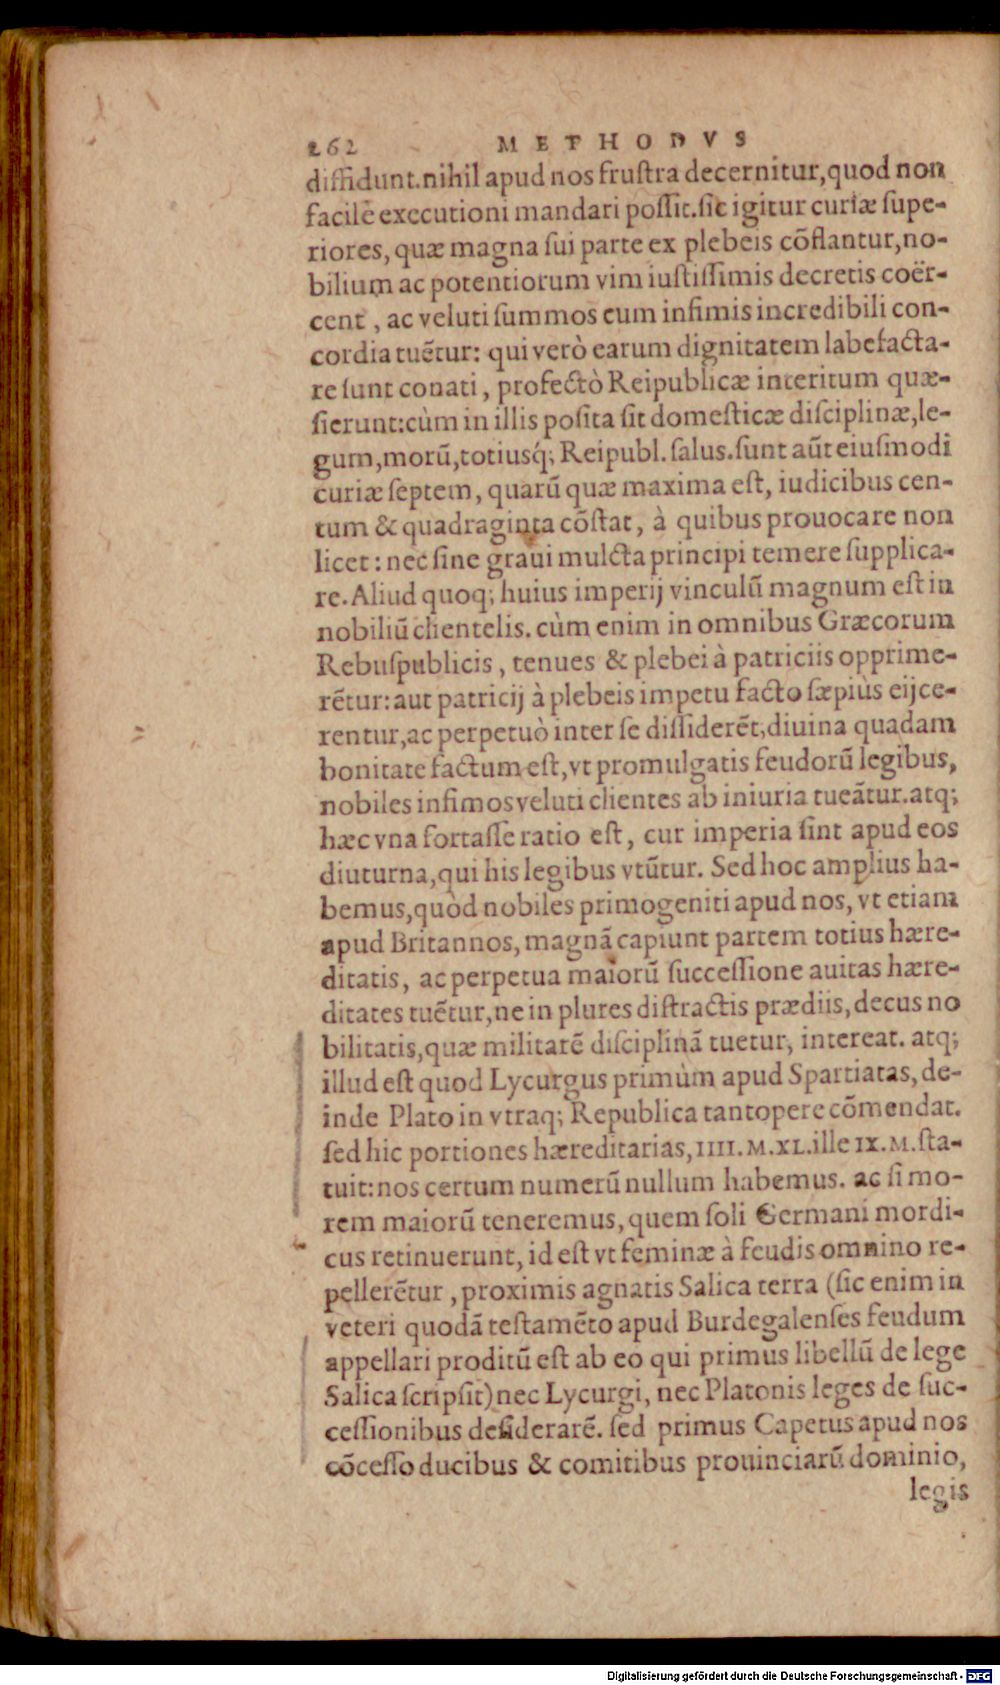 262 METHODVS
diffidunt.nihil apud nos frustra decernitur,quod non
facilè executioni mandari possit.sic igitur curiæ supe-
riores, quæ magna sui parte ex plebeis cõflantur,no-
bilium ac potentiorum vim iustissimis decretis coër-
cent , ac veluti summos cum infimis incredibili con-
cordia tuẽtur: qui verò earum dignitatem labefacta-
re sunt conati , profectò Reipublicæ interitum quæ-
sierunt:cùm in illis posita sit domesticæ disciplinæ,le-
gum,morũ,totiusq́; Reipubl. salus.sunt aũt eiusmodi
curiæ septem, quarũ quæ maxima est, iudicibus cen-
tum & quadraginta cõstat, à quibus prouocare non
licet : nec sine graui mulcta principi temere supplica-
re. Aliud quoq; huius imperij vinculũ magnum est in
nobiliũ clientelis. cùm enim in omnibus Græcorum
Rebuspublicis , tenues & plebei à patriciis opprime-
rẽtur: aut patricij à plebeis impetu facto sæpiùs eijce-
rentur,ac perpetuò inter se dissiderẽt, diuina quadam
bonitate factum est,vt promulgatis feudorũ legibus,
nobiles infimos veluti clientes ab iniuria tueãtur.atq;
hæc vna fortasse ratio est, cur imperia sint apud eos
diuturna,qui his legibus vtũtur. Sed hoc amplius ha-
bemus,quòd nobiles primogeniti apud nos, vt etiam
apud Britannos, magnã capiunt partem totius hære-
ditatis, ac perpetua maiorũ successione auitas hære-
ditates tuẽtur,ne in plures distractis prædiis, decus no
bilitatis,quæ militarẽ disciplinã tuetur, intereat. atq;
illud est quod Lycurgus primùm apud Spartiatas, de-
inde Plato in vtraq; Republica tantopere cõmendat.
sed hic portiones hæreditarias, IIII. M. XL. ille IX. M. sta-
tuit: nos certum numerũ nullum habemus. ac si mo-
rem maiorũ teneremus, quem soli Germani mordi-
cus retinuerunt, id est vt feminæ à feudis omnino re-
pellerẽtur , proximis agnatis Salica terra (sic enim in
veteri quodã testamẽto apud Burdegalenses feudum
appellari proditũ est ab eo qui primus libellũ de lege
Salica scripsit) nec Lycurgi, nec Platonis leges de suc-
cessionibus desiderarẽ. sed primus Capetus apud nos
cõcesso ducibus & comitibus prouinciarũ dominio,
legis
Digitalisierung gefördert durch die Deutsche Forschungsgemeinschaft - DFG